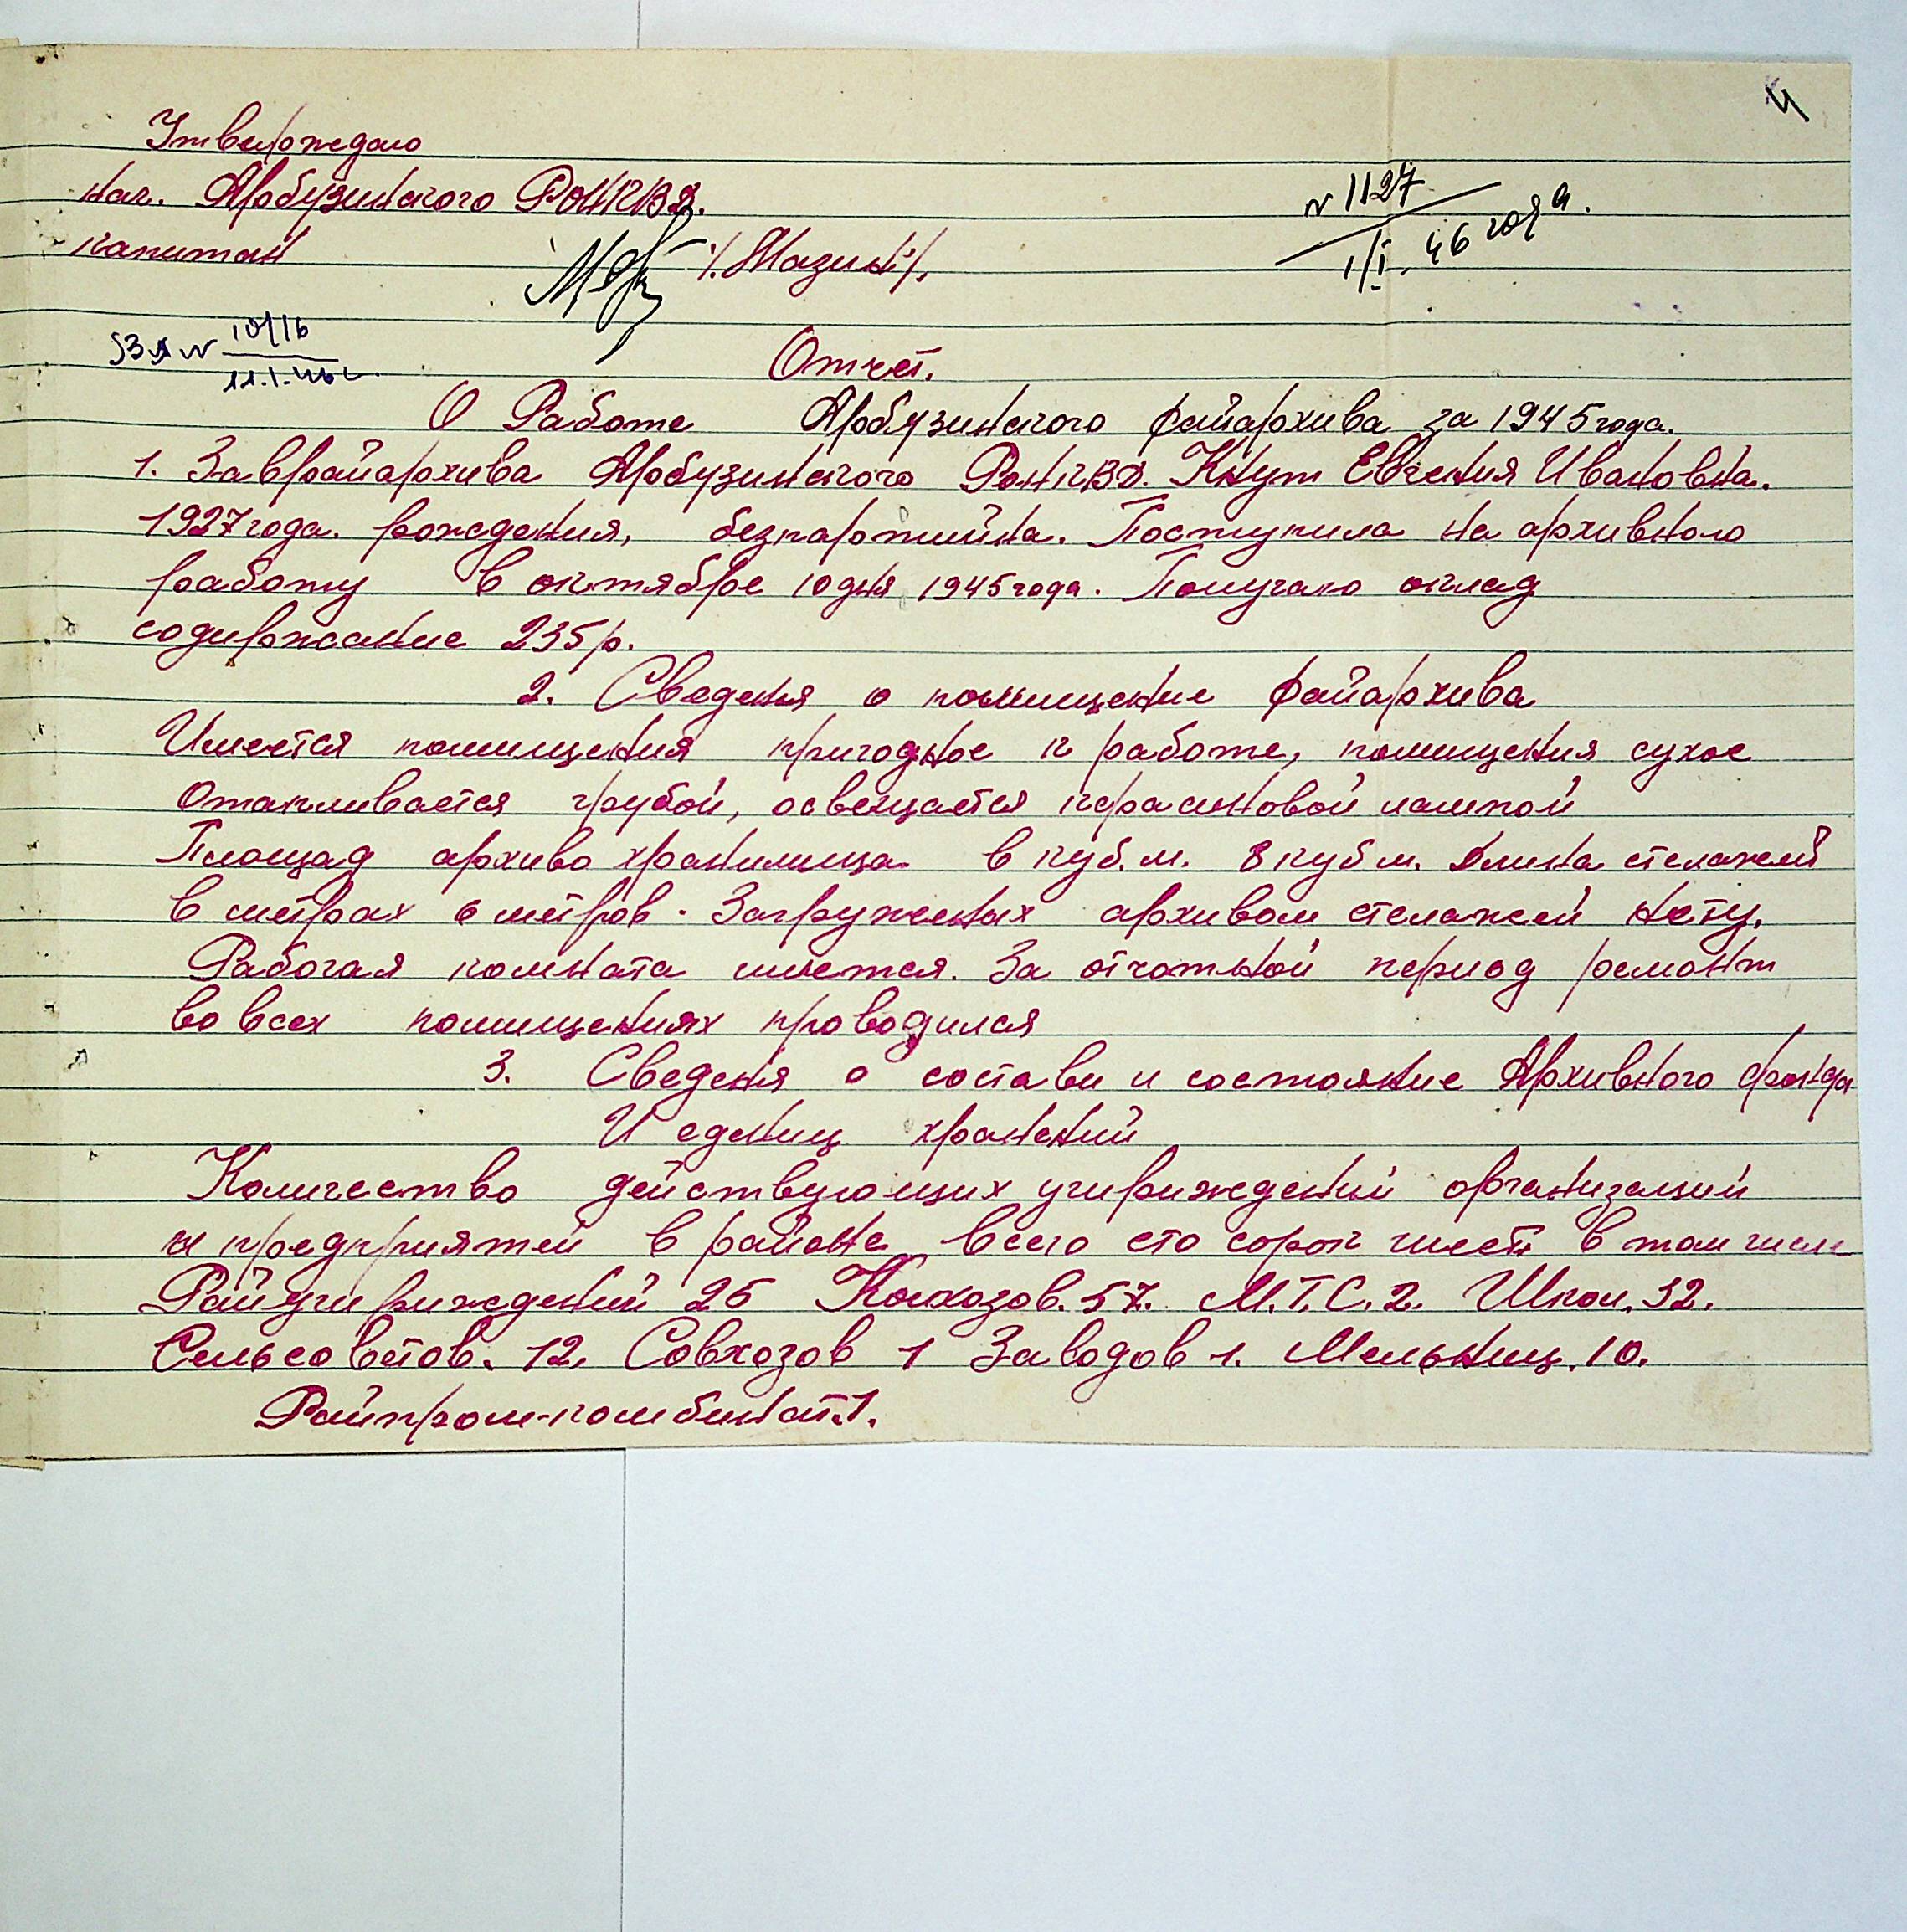 4
Утверждаю
нач. Арбузинского РОНКВД.
капитан /.Мазин/.
№ 1127
1/I. 46 года.
11.I.46 г.
Отчет.
О Работе Арбузинского райархива за 1945 года.
1. Завррайархива Арбузинского РОНКВД. Кнут Евгения Ивановна.
1927 года. рождения, безпартийна. Поступила на архивною
работу в октябре 10 дня 1945 года. Получаю оклад
содиржание 235 р.
2. Сведеня о помищение райархива
Имеется помищения пригодное к работе, помищения сухое
Отапливается грубой, освещается керасиновой лампой
Площад архиво хранилища в куб.м. 8 куб м. Длина стелажей
в метрах 6 метров. Загруженых архивом стелажей нету.
Рабочая комната имется. За отчотной период ремонт
во всех помищениях проводился
3. Сведеня о состави и состояние Архивного фонда
И едениц хранений
Количество действующих учирижедений организаций
и предприятей в районе всего сто сорок шесть в том числе
Райучирижедений 26 Колхозов. 57. М.Т.С. 2. Школ. 32.
Сельсоветов. 12. Совхозов 1 Заводов 1. Мельниц. 10.
Райпром-комбинат. 1.